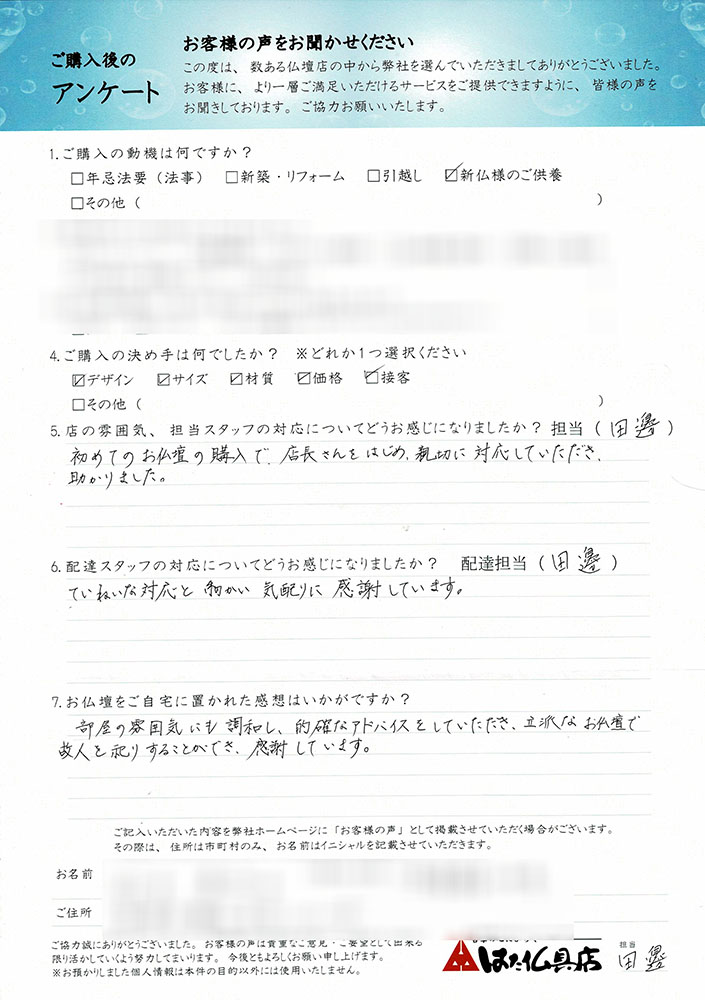 ご購入後の
アンケート
お客様の声をお聞かせください
この度は、数ある仏壇店の中から弊社を選んでいただきましてありがとうございました。
お客様に、より一層ご満足いただけるサービスをご提供できますように、皆様の声を
お聞きしております。ご協力お願いいたします。
1.ご購入の動機は何ですか？
□年忌法要（法事） □新築・リフォーム □引越し ☑新仏様のご供養
□その他（ ）
4.ご購入の決め手は何でしたか？ ※どれか1つ選択ください
☑デザイン ☑サイズ ☑材質 ☑価格 ☑接客
□その他（ ）
5.店の雰囲気、担当スタッフの対応についてどうお感じになりましたか？担当（田邊）
初めてのお仏壇の購入で、店長さんをはじめ、親切に対応していただき、
助かりました。
6.配達スタッフの対応についてどうお感じになりましたか？ 配達担当（田邊）
ていねいな対応と細かい気配りに感謝しています。
7.お仏壇をご自宅に置かれた感想はいかがですか？
部屋の雰囲気にも調和し、的確なアドバイスをしていただき、立派なお仏壇で
故人を祀りすることができ、感謝しています。
ご記入いただいた内容を弊社ホームページに「お客様の声」として掲載させていただく場合がございます。
その際は、住所は市町村のみ、お名前はイニシャルを記載させていただきます。
お名前
ご住所
ご協力誠にありがとうございました。お客様の声は貴重なご意見・ご要望として出来る
限り活かしていくよう努力してまいります。今後ともよろしくお願い申し上げます。
※お預かりしました個人情報は本件の目的以外には使用いたしません。
はた仏具店
担当
田邊